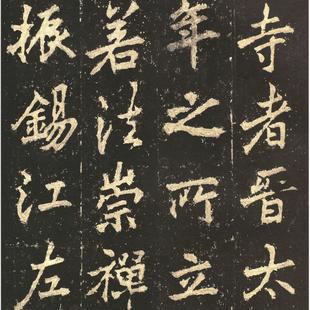 寺者晋太
年之所立
若法崇禅
振錫江左